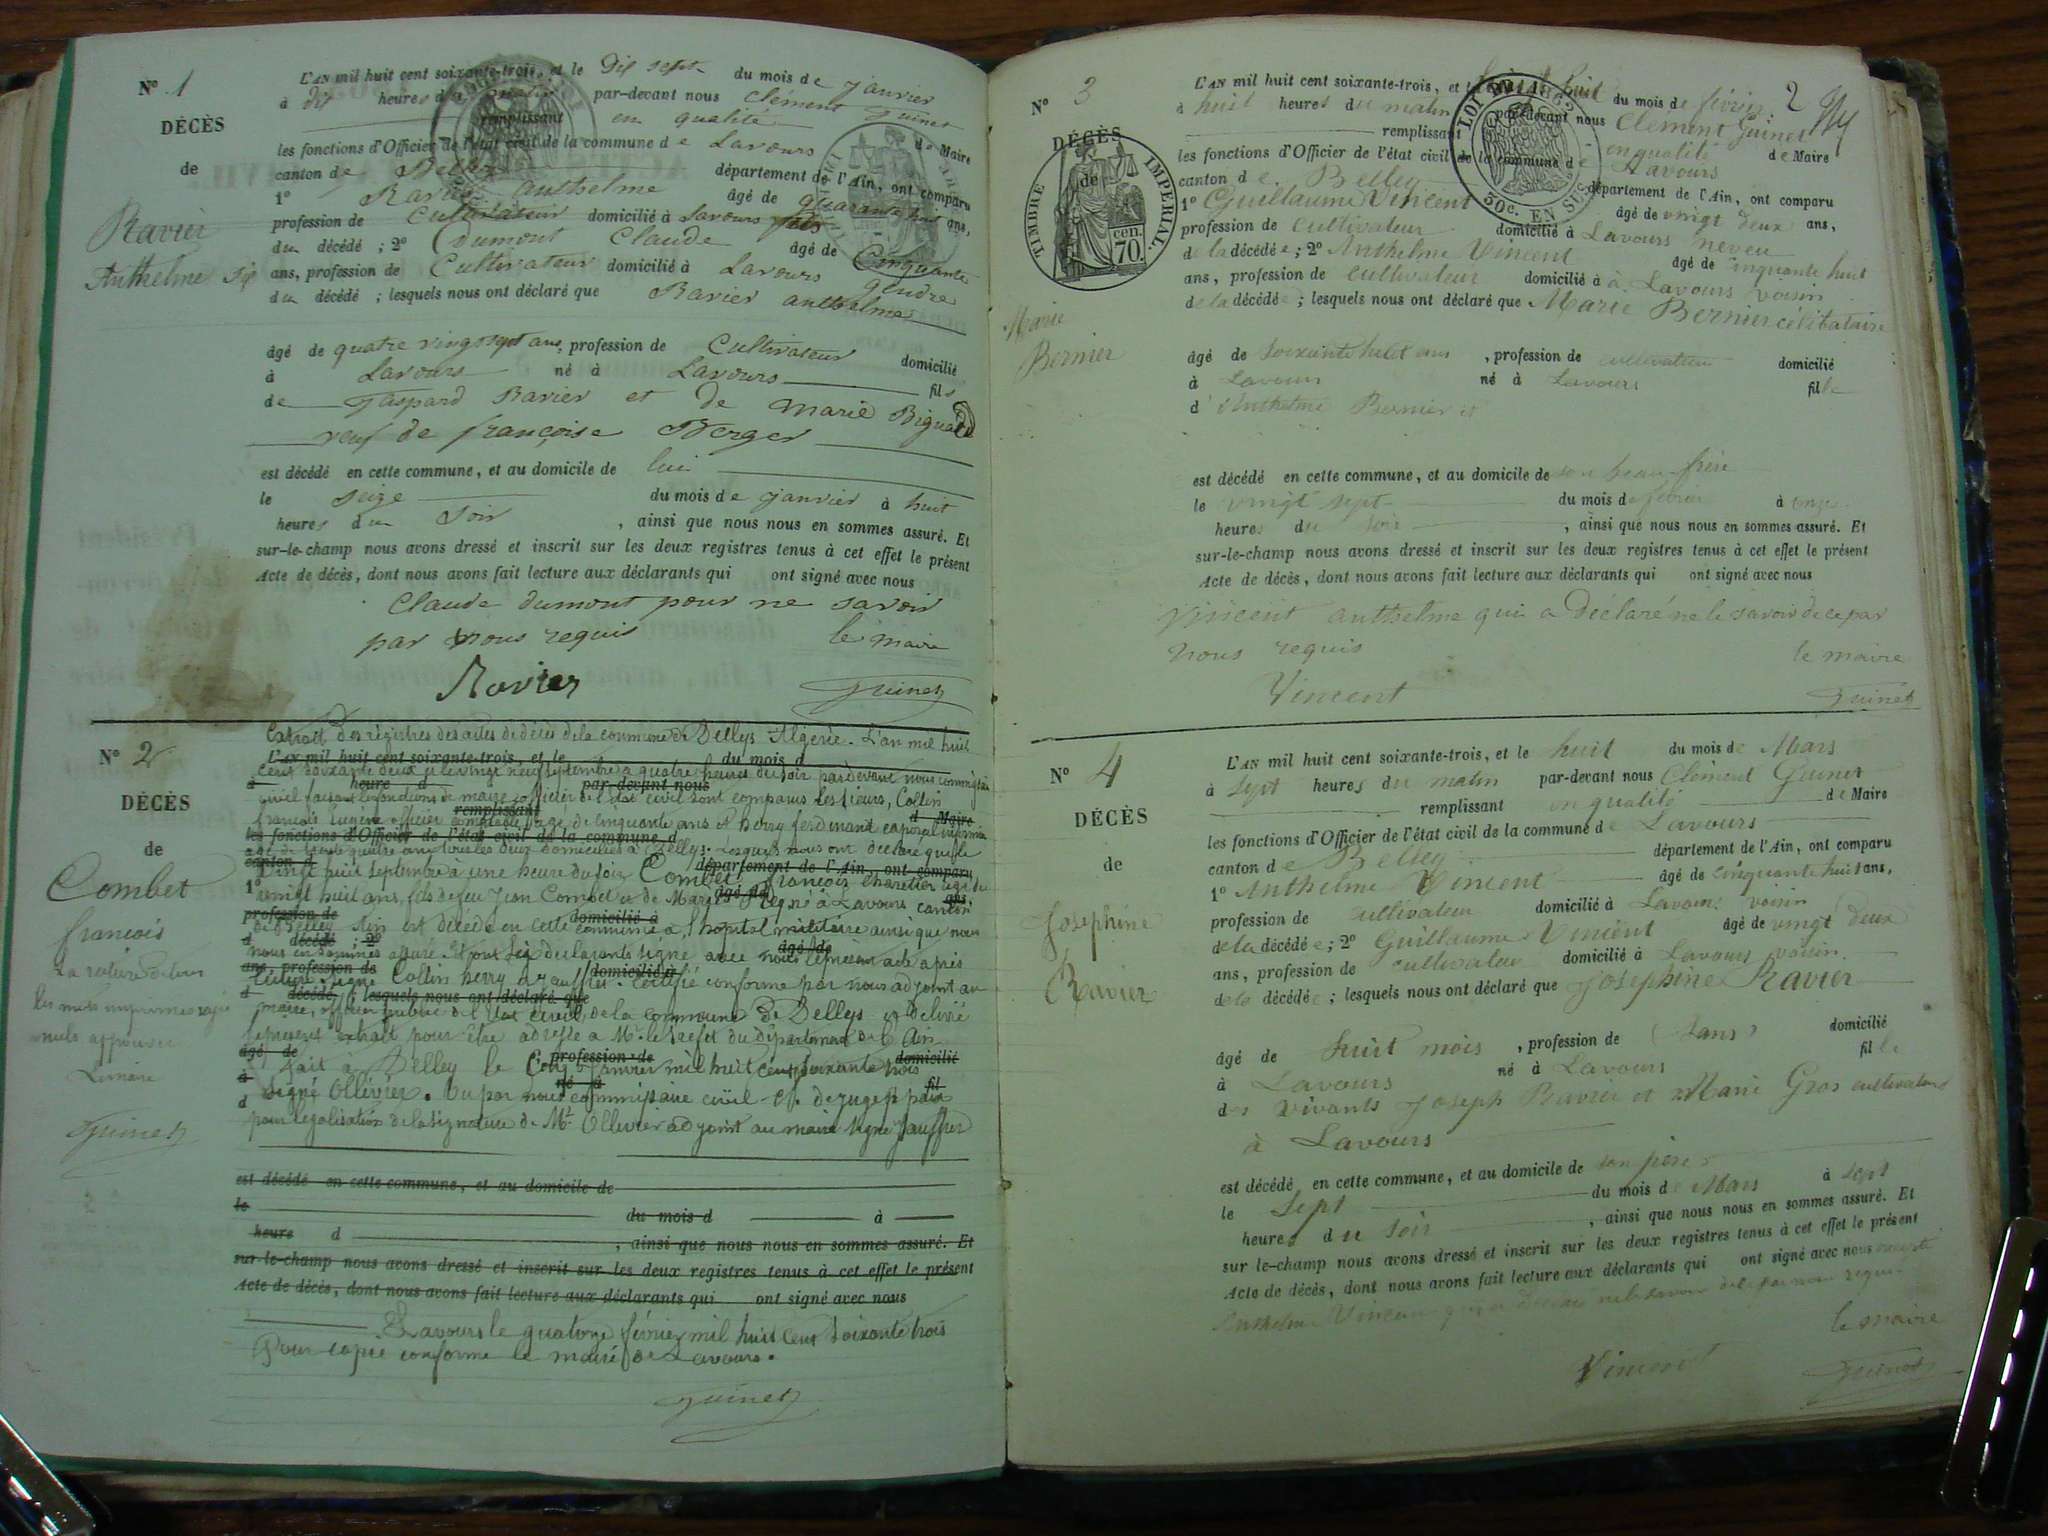 N° 1
DÉCÈS
de
Ravier
Anthelme
L'AN mil huit cent soixante-trois, et le Dix sept du mois de janvier
à dix heures du matin par-devant nous Clément Guinet
remplissant en qualité de Maire
les fonctions d'Officier de l'état civil de la commune de Lavours
canton de Belley département de l'Ain, ont comparu
1° Ravier anthelme âgé de quarante huit ans,
profession de Cultivateur domicilié à Lavours fils
du décédé ; 2° Dumont Claude âgé de Cinquante
ans, profession de Cultivateur domicilié à Lavours gendre
du décédé ; lesquels nous ont déclaré que Ravier anthelme
âgé de quatre vingt sept ans, profession de Cultivateur domicilié
à Lavours né à Lavours fils
de Gaspard Ravier et de marie
veuf de françoise Berger
est décédé en cette commune, et au domicile de lui
le seize du mois de janvier à huit
heures du soir, ainsi que nous nous en sommes assuré. Et
sur-le-champ nous avons dressé et inscrit sur les deux registres tenus à cet effet le présent
Acte de décès, dont nous avons fait lecture aux déclarants qui ont signé avec nous
Claude dumont pour ne savoir
par nous requis le maire
Ravier Guinet
N° 2
DÉCÈS
de
Combet
françois
La rature de tous
les mots imprimés rayés
nuls approuvée
Le maire
Guinet
Extrait des régistres des actes de décès de la commune de Dellys Algérie. L'an mil huit
L'AN mil huit cent soixante-trois, et le du mois d
cent soixante deux et le vingt neuf septembre à quatre heures du soir par devant nous commissaire
à heure d par-devant nous
civil faisant les fonctions de maire officier de l'état civil sont comparus les sieurs, Collin
remplissant d Maire
françois Eugène officier comptable âgé de cinquante ans et Berry ferdinant caporal infirmier
les fonctions d'Officier de l'état civil de la commune d
âgé de trente quatre ans tous les deux domiciliés à Dellys. Lesquels nous ont déclaré que le
canton d département de l'Ain, ont comparu
Vingt huit septembre à une heure du soir Combet françois charetier âgé de
1° âgé de ans,
vingt huit ans, fils de feu Jean Combet et de né à Lavours canton
profession de domicilié à
de Belley Ain est décédé en cette commune à l'hopital militaire ainsi que nous
d décédé ; 2° âgé de
nous en sommes assuré. Et ont les déclarants signé avec nous le présent acte après
ans, profession de domicilié à
lecture. signé Collin berry et Jauffret. Certifié conforme par nous adjoint au
d décédé ; lesquels nous ont déclaré que
maire, officier public de l'état civil de la commune de Dellys et délivré
le présent extrait pour être adressé à Mr. le Préfet du département de l'Ain
âgé de profession de domicilié
fait à Dellys le Cinq Janvier mil huit cent soixante trois
à né à fil
signé Ollivier. Vu par nous commissaire civil de juge de paix
d
pour légalisation de la signature de Mr. Ollivier adjoint au maire signé Jauffret
est décédé en cette commune, et au domicile de
le du mois d à
heure d , ainsi que nous nous en sommes assuré. Et
sur-le-champ nous avons dressé et inscrit sur les deux registres tenus à cet effet le présent
Acte de décès, dont nous avons fait lecture aux déclarants qui ont signé avec nous
à Lavours le quatorze février mil huit cent soixante trois
Pour copie conforme le maire de Lavours.
Guinet
2
N° 3
DÉCÈS
de
TIMBRE IMPERIAL
70 cen.
Marie
Bernier
LOI DU 1862
50c. EN SUS
L'AN mil huit cent soixante-trois, et le vingt huit du mois de février
à huit heures du matin par-devant nous Clément Guinet
remplissant en qualité de Maire
les fonctions d'Officier de l'état civil de la commune de Lavours
canton de Belley département de l'Ain, ont comparu
1° Guillaume Vincent âgé de vingt deux ans,
profession de cultivateur domicilié à Lavours neveu
de la décédée ; 2° Anthelme Vincent âgé de cinquante huit
ans, profession de cultivateur domicilié à à Lavours voisin
de la décédée ; lesquels nous ont déclaré que Marie Bernier célibataire
âgé de soixante huit ans, profession de cultivateur domicilié
à Lavours né à Lavours fille
d'Anthelme Bernier et
est décédé en cette commune, et au domicile de son beau-frère
le vingt sept du mois de février à onze
heures du soir, ainsi que nous nous en sommes assuré. Et
sur-le-champ nous avons dressé et inscrit sur les deux registres tenus à cet effet le présent
Acte de décès, dont nous avons fait lecture aux déclarants qui ont signé avec nous
Vincent anthelme qui a déclaré ne le savoir de ce par
nous requis le maire
Vincent Guinet
N° 4
DÉCÈS
de
Josephine
Ravier
L'AN mil huit cent soixante-trois, et le huit du mois de Mars
à sept heures du matin par-devant nous Clément Guinet
remplissant en qualité de Maire
les fonctions d'Officier de l'état civil de la commune de Lavours
canton de Belley département de l'Ain, ont comparu
1° Anthelme Vincent âgé de cinquante huit ans,
profession de cultivateur domicilié à Lavours voisin
de la décédée ; 2° Guillaume Vincent âgé de vingt deux
ans, profession de cultivateur domicilié à Lavours voisin
de la décédée ; lesquels nous ont déclaré que Josephine Ravier
âgé de huit mois, profession de (sans) domicilié
à Lavours né à Lavours fille
des vivants Joseph Ravier et Marie Gros cultivateurs
à Lavours
est décédé en cette commune, et au domicile de son père
le sept du mois de Mars à sept
heures du soir, ainsi que nous nous en sommes assuré. Et
sur-le-champ nous avons dressé et inscrit sur les deux registres tenus à cet effet le présent
Acte de décès, dont nous avons fait lecture aux déclarants qui ont signé avec nous
Anthelme Vincent qui a déclaré ne le savoir de ce par nous requis
le maire
Vincent Guinet